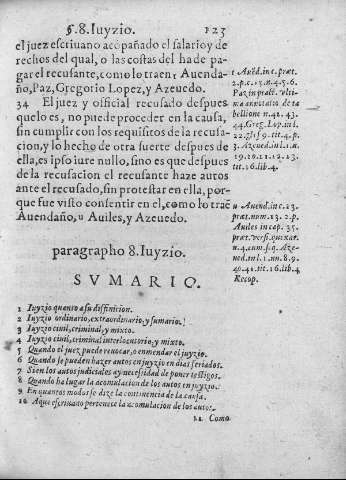 §.8. Iuyzio. 123
el juez escriuano acõpañado el salario y de
rechos del qual, o las costas del ha de pa-
gar el recusante, como lo traen t Auenda-
ño, Paz, Gregorio Lopez, y Azeuedo.
34 El juez y official recusado despues
que lo es, no puede proceder en la causa,
sin cumplir con los requisitos de la recusa-
cion, y lo hecho de otra suerte despues de
ella, es ipso iure nullo, sino es que despues
de la recusacion el recusante haze autos
ante el recusado, sin protestar en ella, por-
que fue visto consentir en el, como lo traẽ
Auendaño, u Auiles, y Azeuedo.
t Auẽd. in c. præt.
2. p. c. 13. n. 4. 5. 6.
Paz, in pract. vlti-
ma annotatio de ta
bellione n. 42. 43.
44. Greg. Lup. in l.
22. glos. 9. tit. 4. p.
3. Azeued. in l. 1. n.
19. 10. 11. 12. 13.
tit. 16. lib. 4.
u Auend. in c.
præt. num. 13. 2. p.
Auiles in cap. 35.
præt. versi. quixar.
n. 4. cum sq. Aze-
ued. in l. 1. nn. 8. 9.
40. 41. tit. 16. lib. 4
Recop.
paragrapho 8. Iuyzio.
SVMARIO.
1 Iuyzio quanto a su diffinicion.
2 Iuyzio ordinario, extraordinario, y sumario.
3 Iuyzio ciuil, criminal, y mixto.
4 Iuyzio ciuil, criminal interlocutorio, y mixto.
5 Quando el juez puede reuocar, o enmendar el juyzio.
6 Quando se pueden hazer autos en juyzio en dias feriados.
7 Si en los autos judiciales ay necesidad de poner testigos.
8 Quando ha lugar la acomulacion de los autos en juyzio.
9 En quantos modos se dize la continencia de la causa.
10 A que escriuano pertenece la acomulacion de los autos.
11 Como